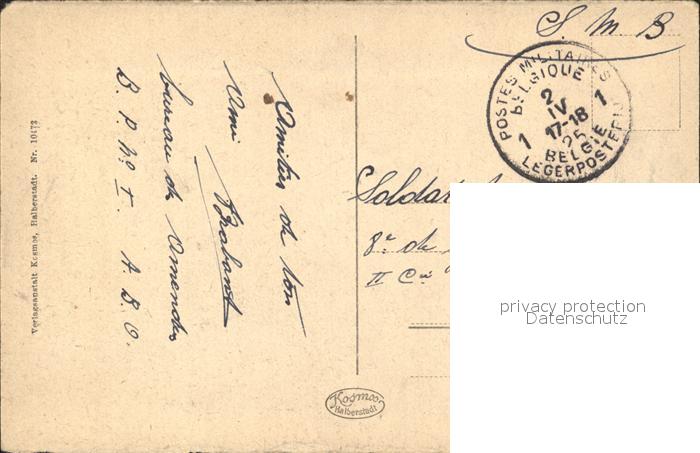 S. M. B
POSTES MILITAIRES
BELGIQUE
2
IV
1 17-18 1
25
BELGIË
LEGERPOSTERIJ
Amitiés de ton
Ami Brabant
bureau de
B. P. No I. A. B. O.
Soldat
8e de
II Cie
Verlagsanstalt Kosmos, Halberstadt. Nr. 10473
Kosmos
Halberstadt
privacy protection
Datenschutz